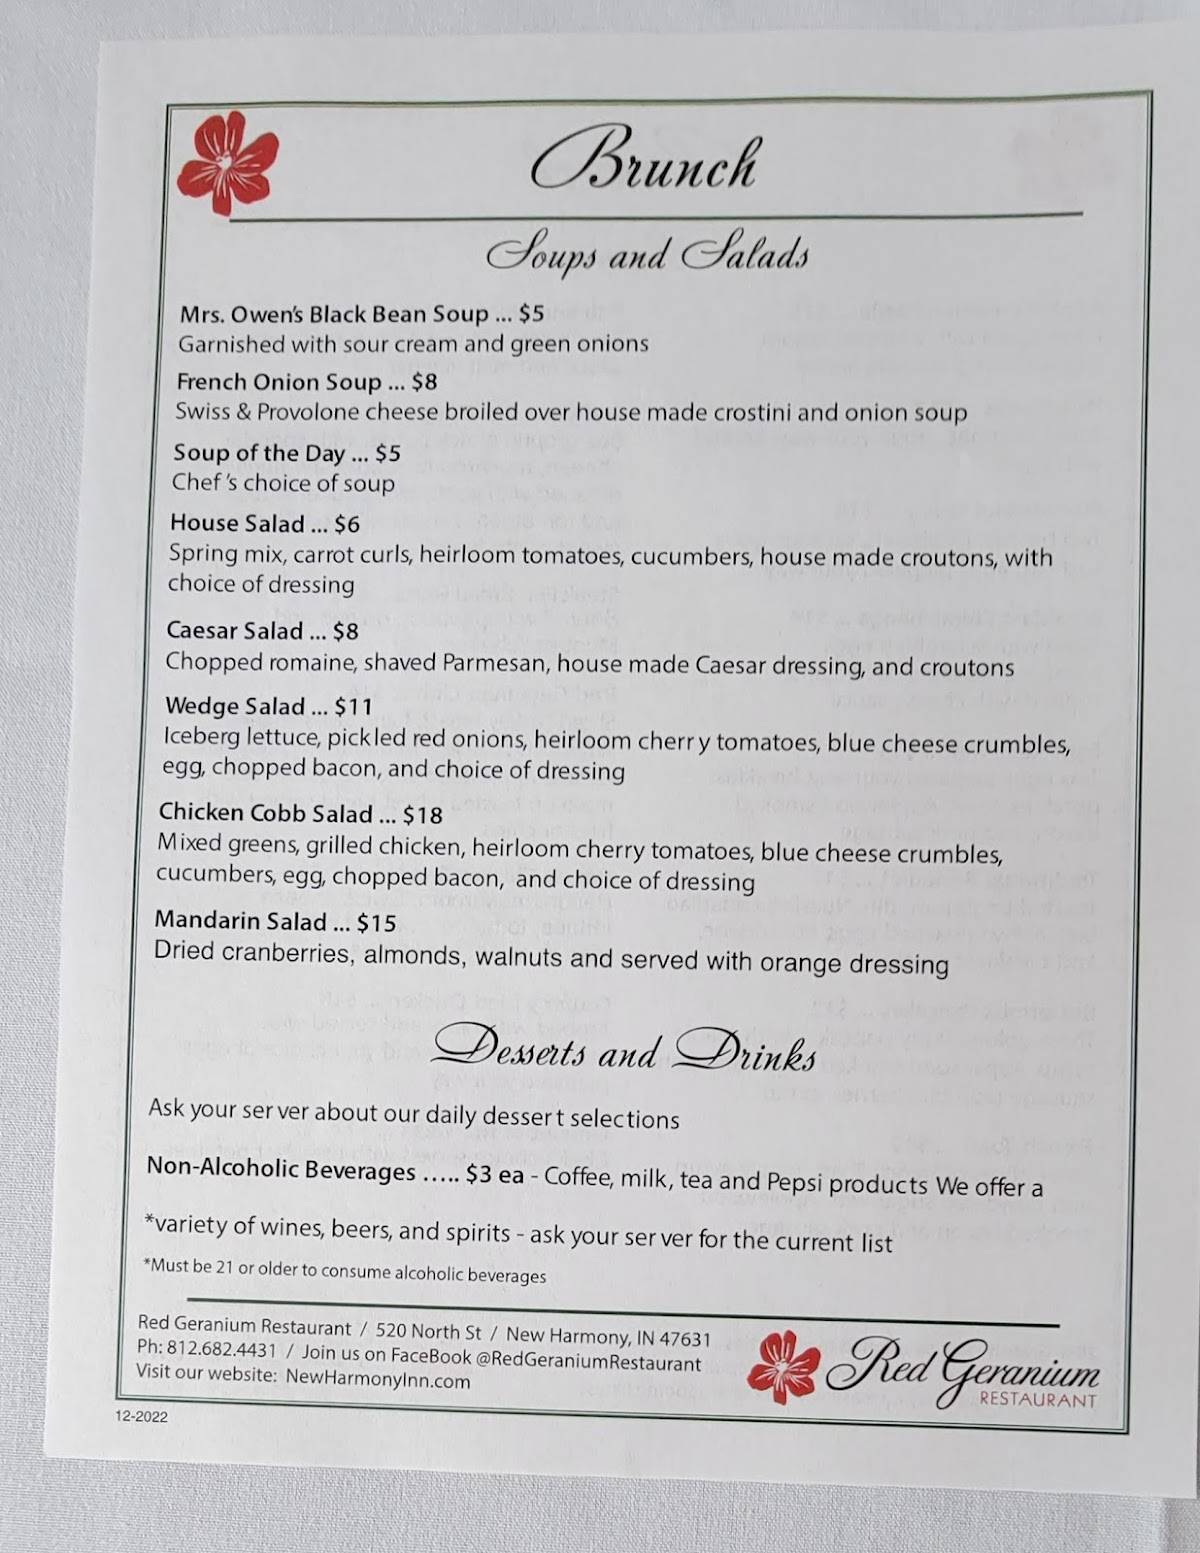 Brunch
Soups and Salads
Mrs. Owen's Black Bean Soup ... $5
Garnished with sour cream and green onions
French Onion Soup ... $8
Swiss & Provolone cheese broiled over house made crostini and onion soup
Soup of the Day ... $5
Chef's choice of soup
House Salad ... $6
Spring mix, carrot curls, heirloom tomatoes, cucumbers, house made croutons, with
choice of dressing
Caesar Salad ... $8
Chopped romaine, shaved Parmesan, house made Caesar dressing, and croutons
Wedge Salad ... $11
Iceberg lettuce, pickled red onions, heirloom cherry tomatoes, blue cheese crumbles,
egg, chopped bacon, and choice of dressing
Chicken Cobb Salad ... $18
Mixed greens, grilled chicken, heirloom cherry tomatoes, blue cheese crumbles,
cucumbers, egg, chopped bacon, and choice of dressing
Mandarin Salad ... $15
Dried cranberries, almonds, walnuts and served with orange dressing
Desserts and Drinks
Ask your server about our daily dessert selections
Non-Alcoholic Beverages ..... $3 ea - Coffee, milk, tea and Pepsi products We offer a
*variety of wines, beers, and spirits - ask your server for the current list
*Must be 21 or older to consume alcoholic beverages
Red Geranium Restaurant / 520 North St / New Harmony, IN 47631
Ph: 812.682.4431 / Join us on FaceBook @RedGeraniumRestaurant
Visit our website: NewHarmonyInn.com
Red Geranium
RESTAURANT
12-2022